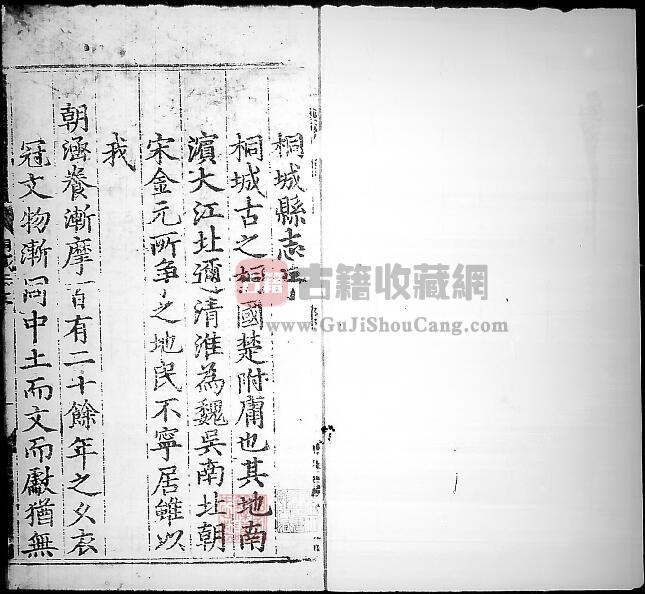 桐城縣志序
桐城古之桐國楚附庸也其地南
濵大江北邇清淮為魏吳南北朝
宋金元所爭之地民不寧居雖以
我
朝涵養漸摩百有二十餘年之久衣
冠文物漸同中土而文而獻猶無
古籍
古籍收藏網
www.GuJiShouCang.com